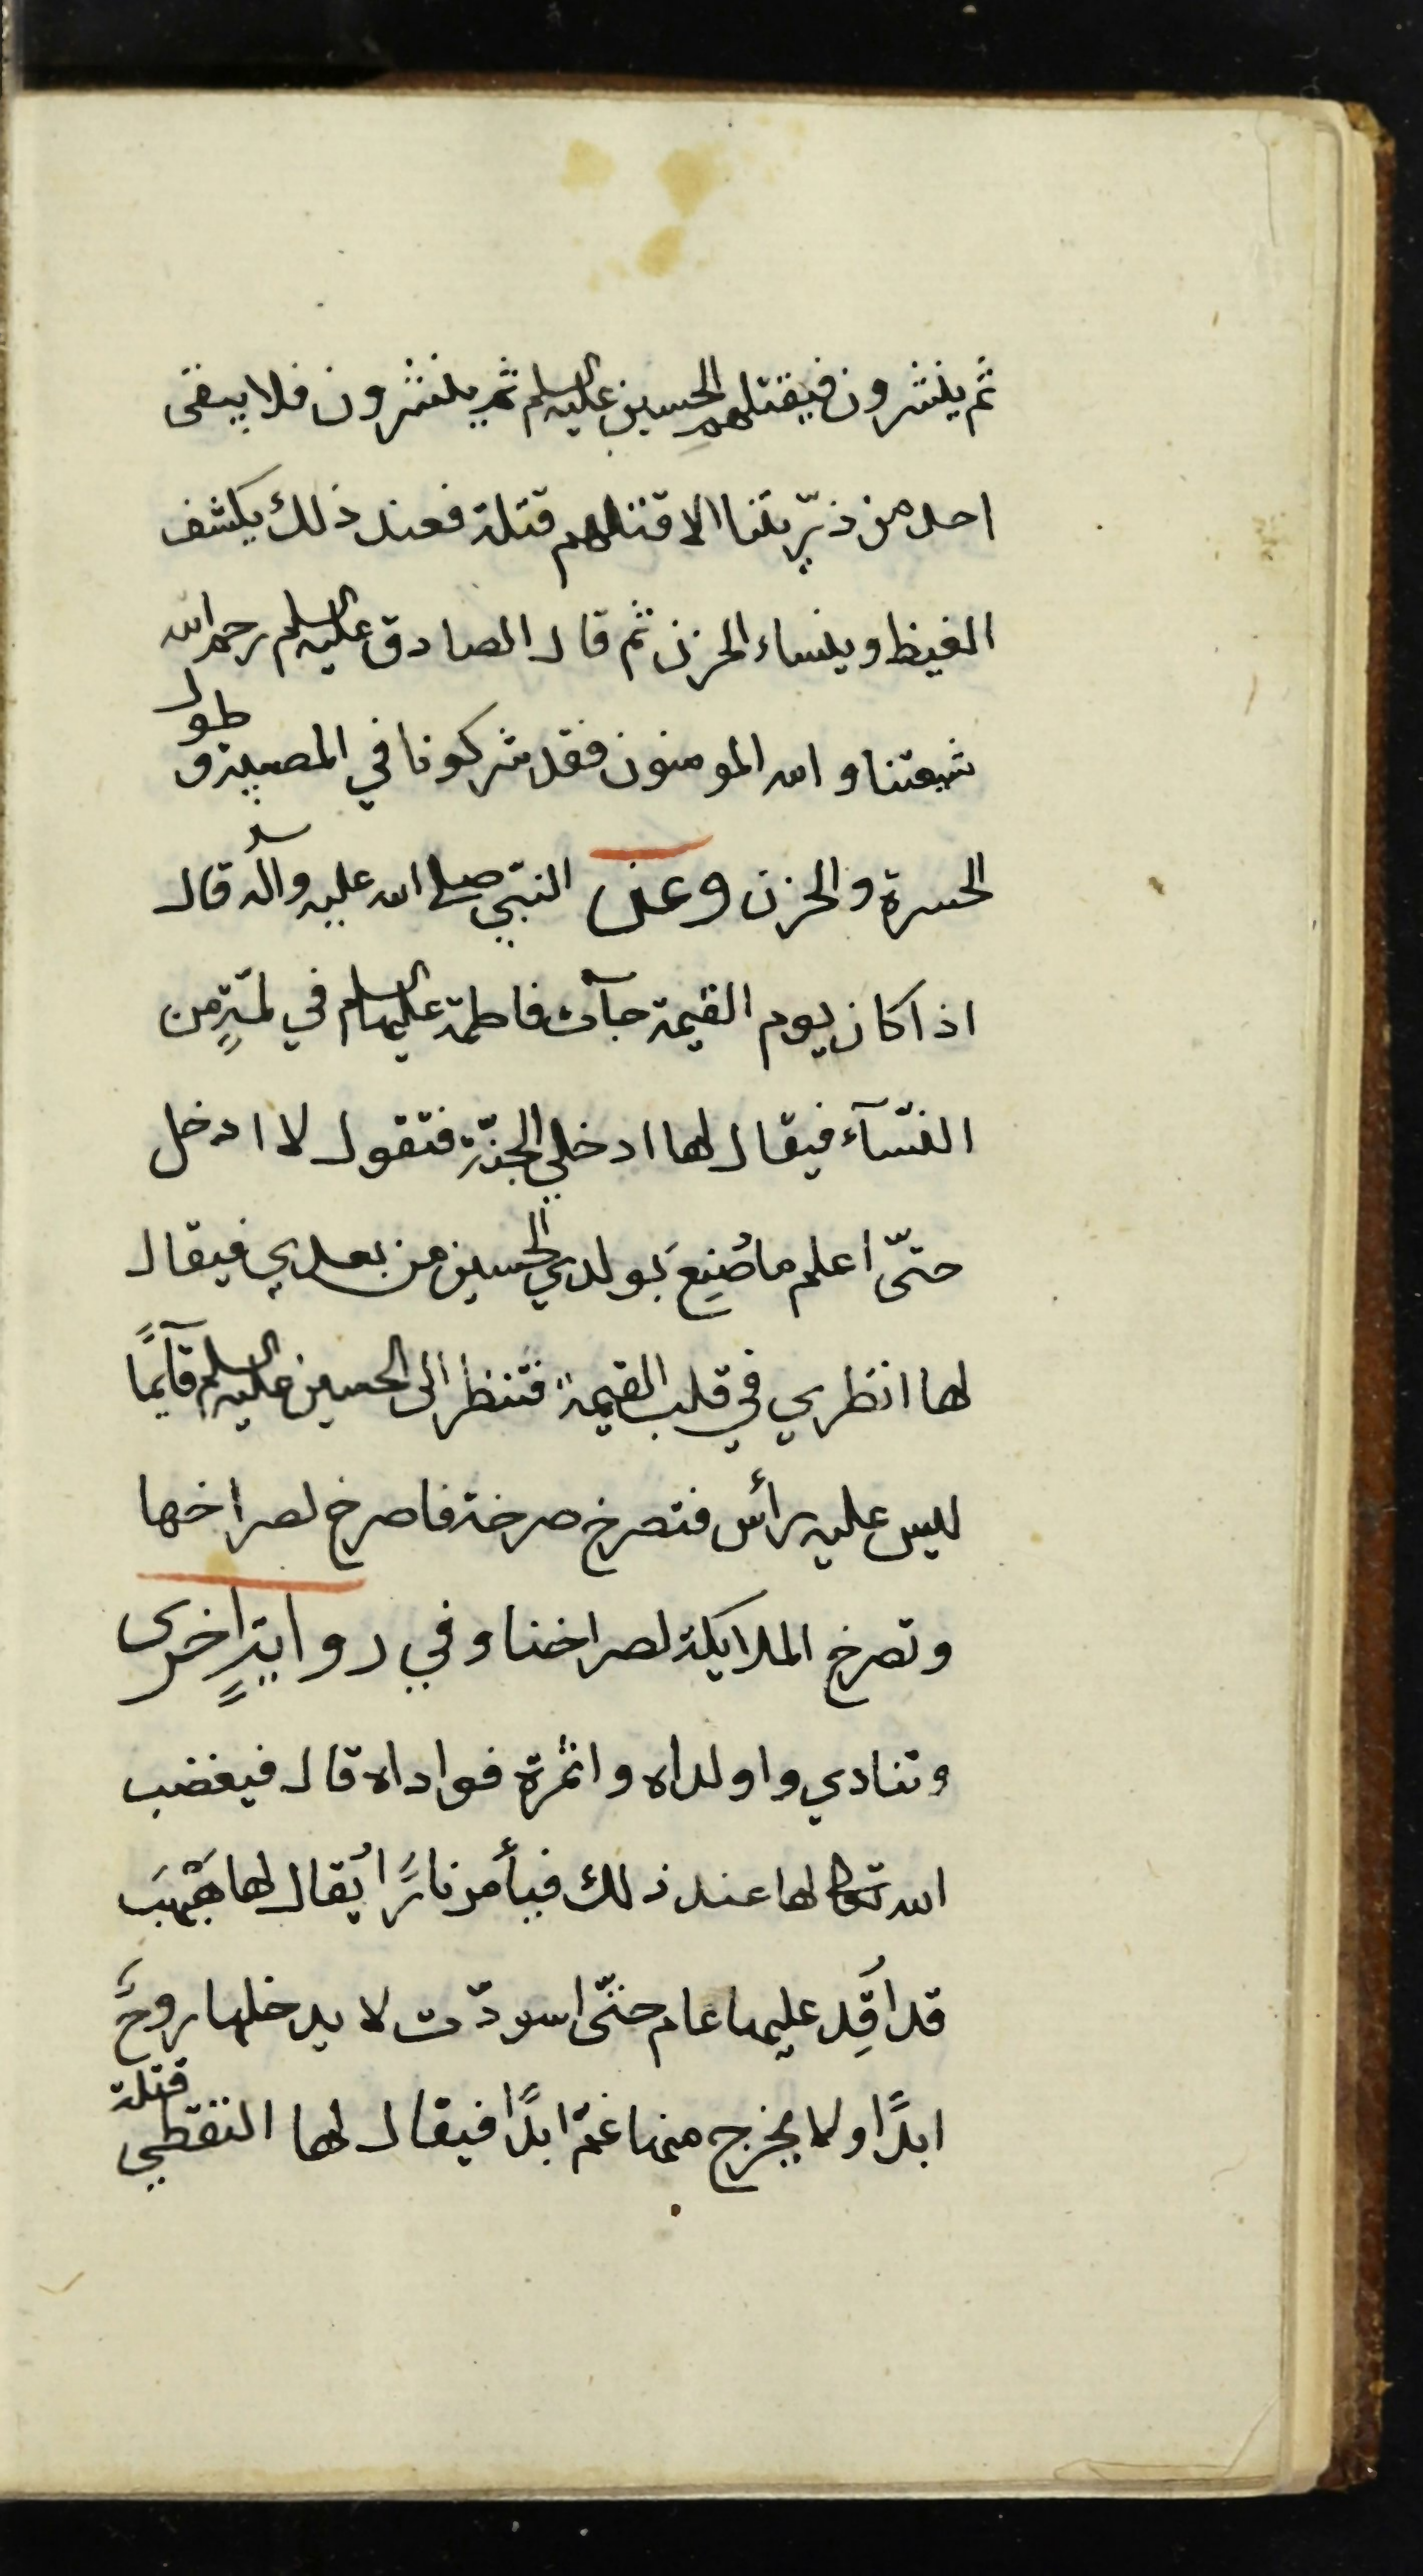 ثم ينشرون فيقتلهم الحسين عليه السلم ثم ينشرون فلا يبقى
احد من ذرّيتنا الا قتلهم قتلة فعند ذلك يكشف
الغيظ وينساء الحزن ثم قال الصادق عليه السلم رحم الله
شيعتنا والله المومنون فقد شركونا في المصيبة وطول
الحسرة والحزن وعن النبّي صلى الله عليه وآله وسلم قال
اذا كان يوم القيمة جآت فاطمة عليها السلم في لمّةٍ من
النسّآء فيقال لها ادخلي الجنّة فتقول لا ادخل
حتّى اعلم ما صُنِعَ بولدي الحسين من بعدي فيقال
لها انظري في قلب القيمة فتنظر الى الحسين عليه السلم قآيمًا
ليس عليه رأس فتصرخ صرخة فاصرخ لصراخها
وتصرخ الملايكة لصراخنا وفي روايةٍ اخرى
وتنادي واولداه واثمرة فواداه قال فيغضب
الله تعالى لها عند ذلك فيأمر نارًا يُقال لها هَبْهَبَ
قد اُقِد عليها عام حتّى اسودّت لا يدخلها روحٌ
ابدًا ولا يخرج منها غمّ ابدًا فيقال لها التقطي قتلة